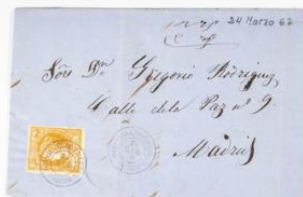 24 Marzo 62
Sõre Dn Gregorio Rodriguez
Calle dela Paz nº 9
Madrid